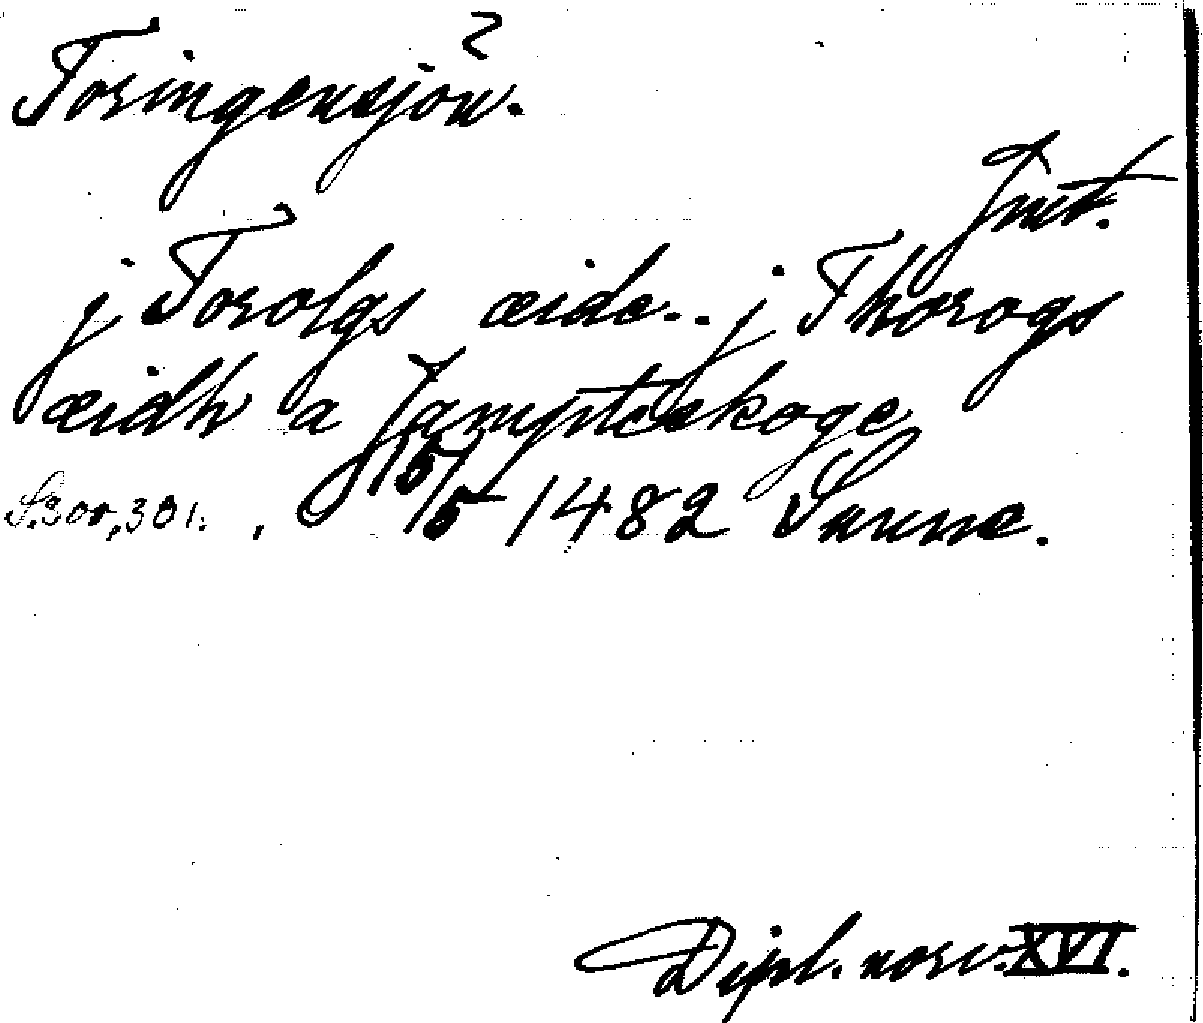 ?
Toringensjön.
Jmt.
j Torolgs æide.. j Thorogs
æidh a Jampteskoge
S. 300, 301. , 15/5 1482 Sunne.
Dipl. norv. XVI.